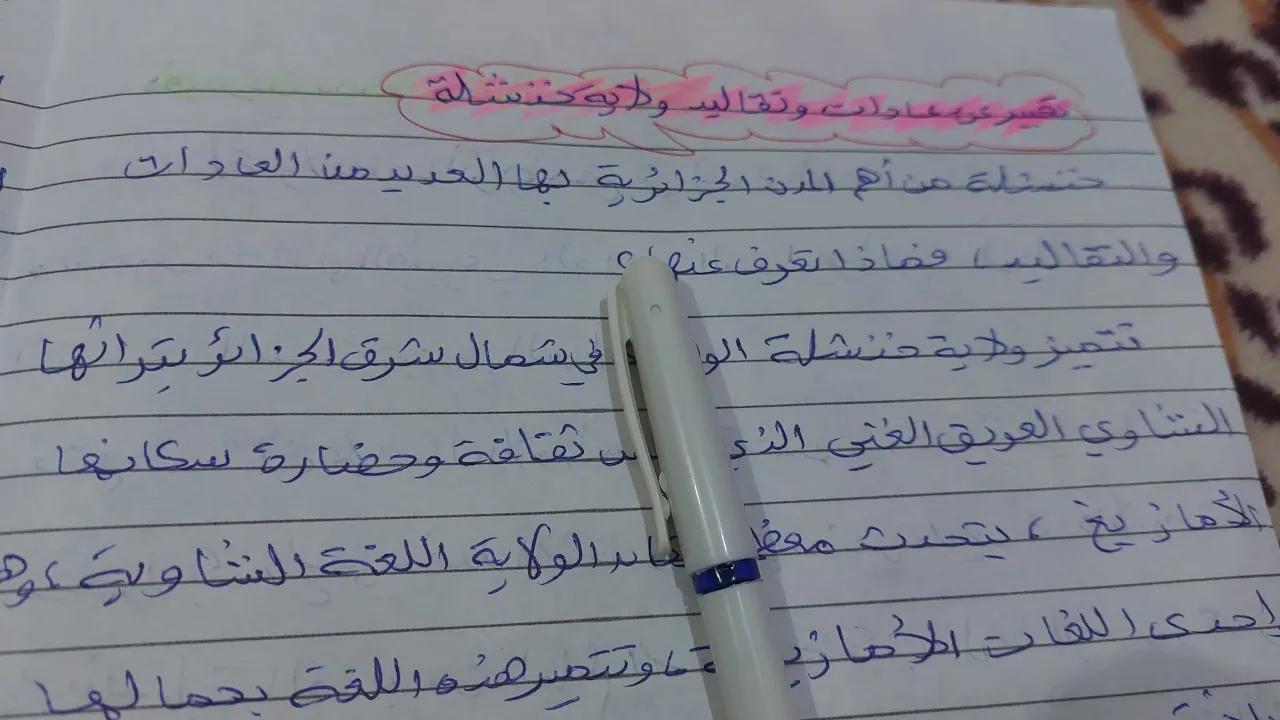 تقرير عن عادات وتقاليد ولاية خنشلة
خنشلة من أهم المدن الجزائرية بها العديد من العادات
والتقاليد، فماذا تعرف عنها؟
تتميز ولاية خنشلة في شمال شرق الجزائر بتراثها
الشاوي العريق الغني الذي ثقافة وحضارة سكانها
الأمازيغ، يتحدث الولاية اللغة الشاوية،
إحدى اللغات الأمازيغية، وتتميز هذه اللغة بجمالها